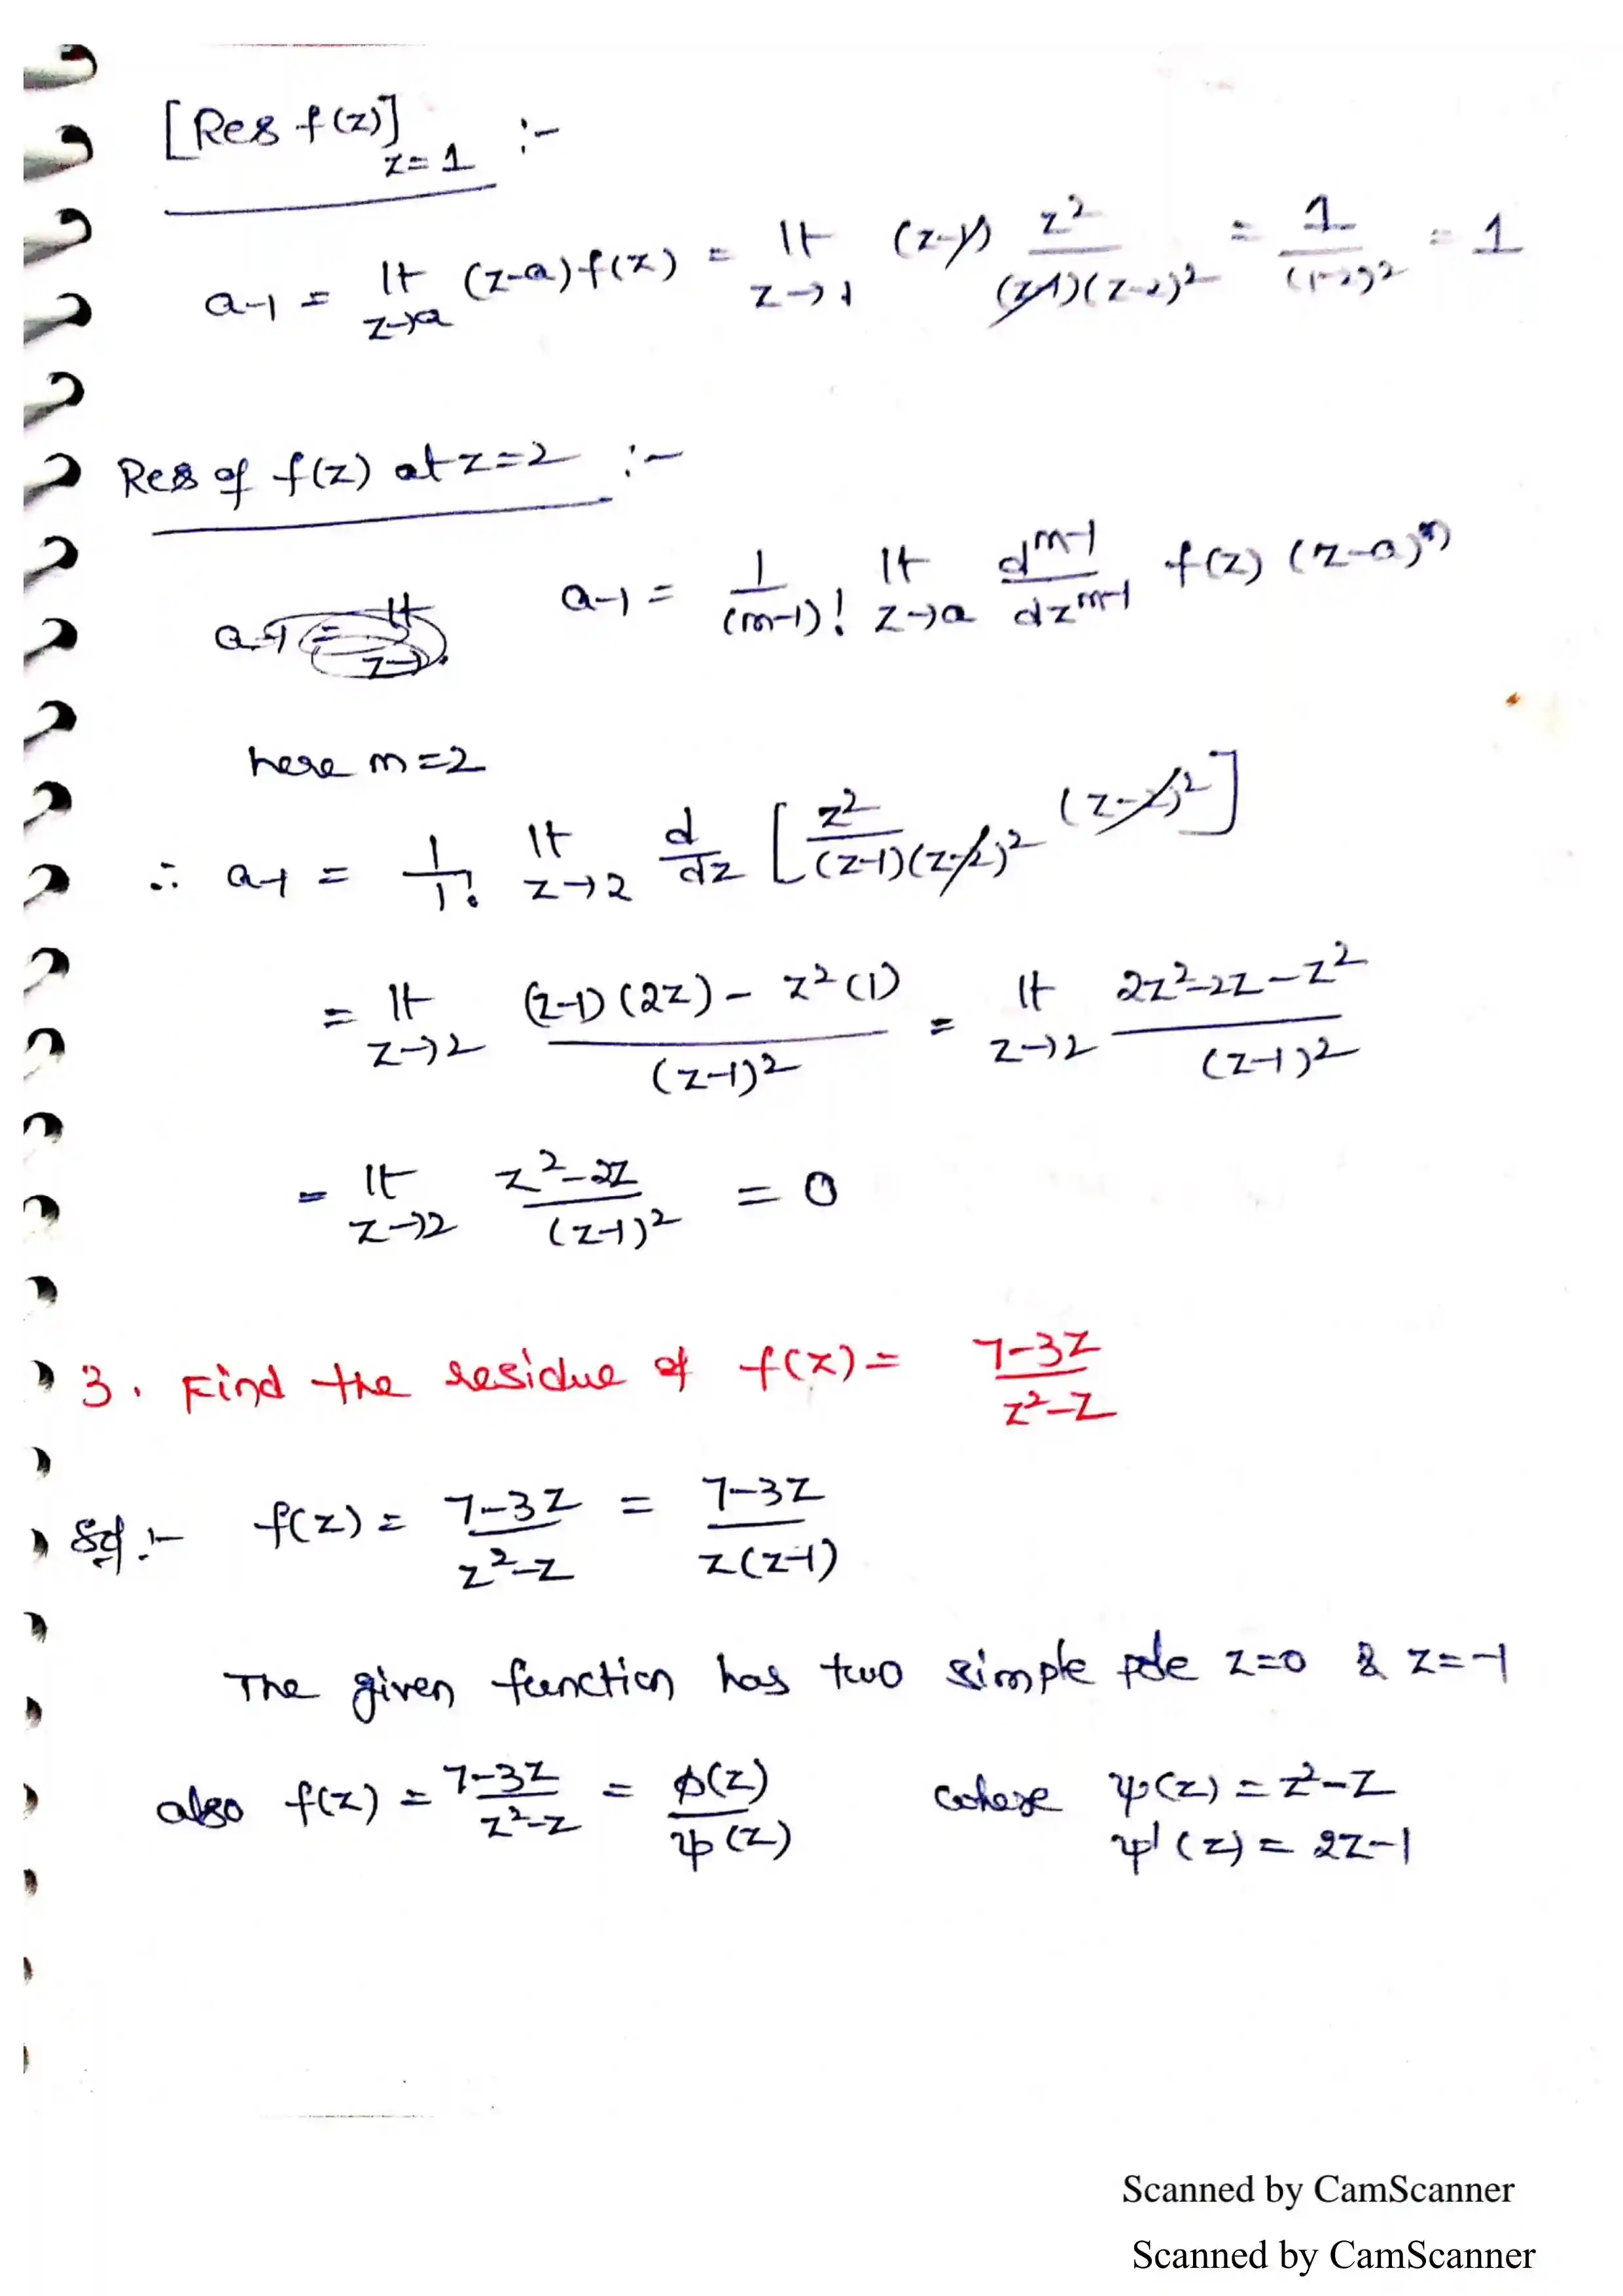 [Res f(z)]z=1 :-
a-1 = lt z→a (z-a) f(z) = lt z→1 (z-1) z²/(z-1)(z-2)² = 1/(1-2)² = 1
Res of f(z) at z=2 :-
a-1 = 1/(m-1)! lt z→a d^m-1/dz^m-1 f(z) (z-a)^m
here m=2
∴ a-1 = 1/1! lt z→2 d/dz [z²/(z-1)(z-2)² (z-2)²]
= lt z→2 (z-1)(2z) - z²(1)/(z-1)² = lt z→2 2z²-2z-z²/(z-1)²
= lt z→2 z²-2z/(z-1)² = 0
3. Find the residue of f(z) = 7-3z/z²-z
Sol :- f(z) = 7-3z/z²-z = 7-3z/z(z-1)
The given function has two simple pole z=0 & z=-1
also f(z) = 7-3z/z²-z = φ(z)/ψ(z) where ψ(z) = z²-z
ψ'(z) = 2z-1
Scanned by CamScanner
Scanned by CamScanner